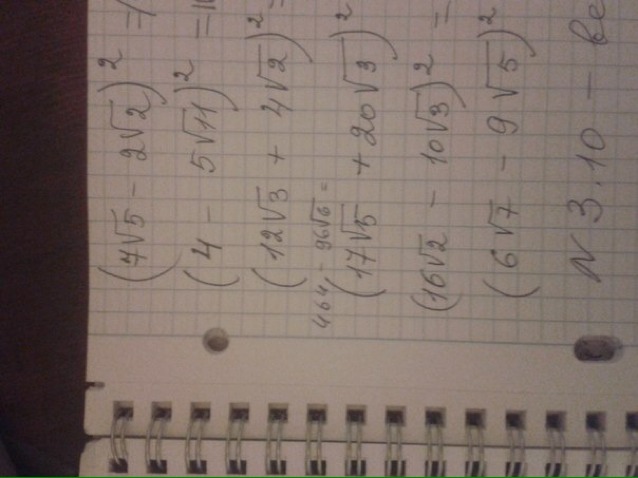 (7√5 - 2√2)² =
(4 - 5√11)² =
(12√3 + 4√2)² =
464 - 96√6 =
(17√5 + 20√3)²
(16√2 - 10√3)² =
(6√7 - 9√5)²
N 3.10 -